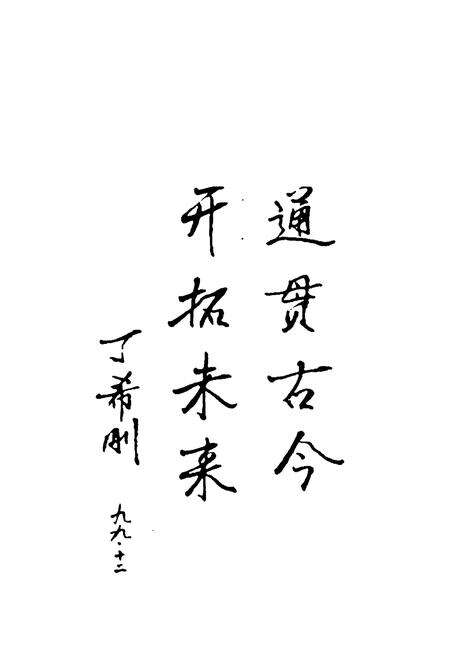 通贯古今
开拓未来
丁希刚
九九·十二